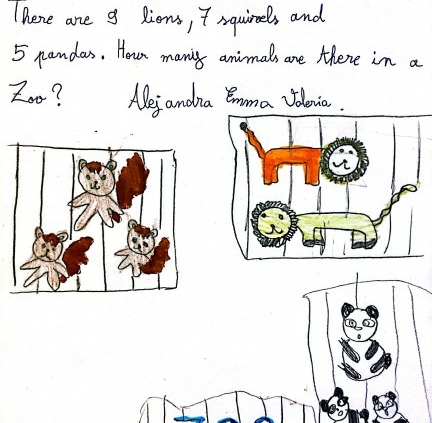 There are 9 lions, 7 squirels and
5 pandas. How many animals are there in a
Zoo? Alejandra Emma Valeria.
ZOO